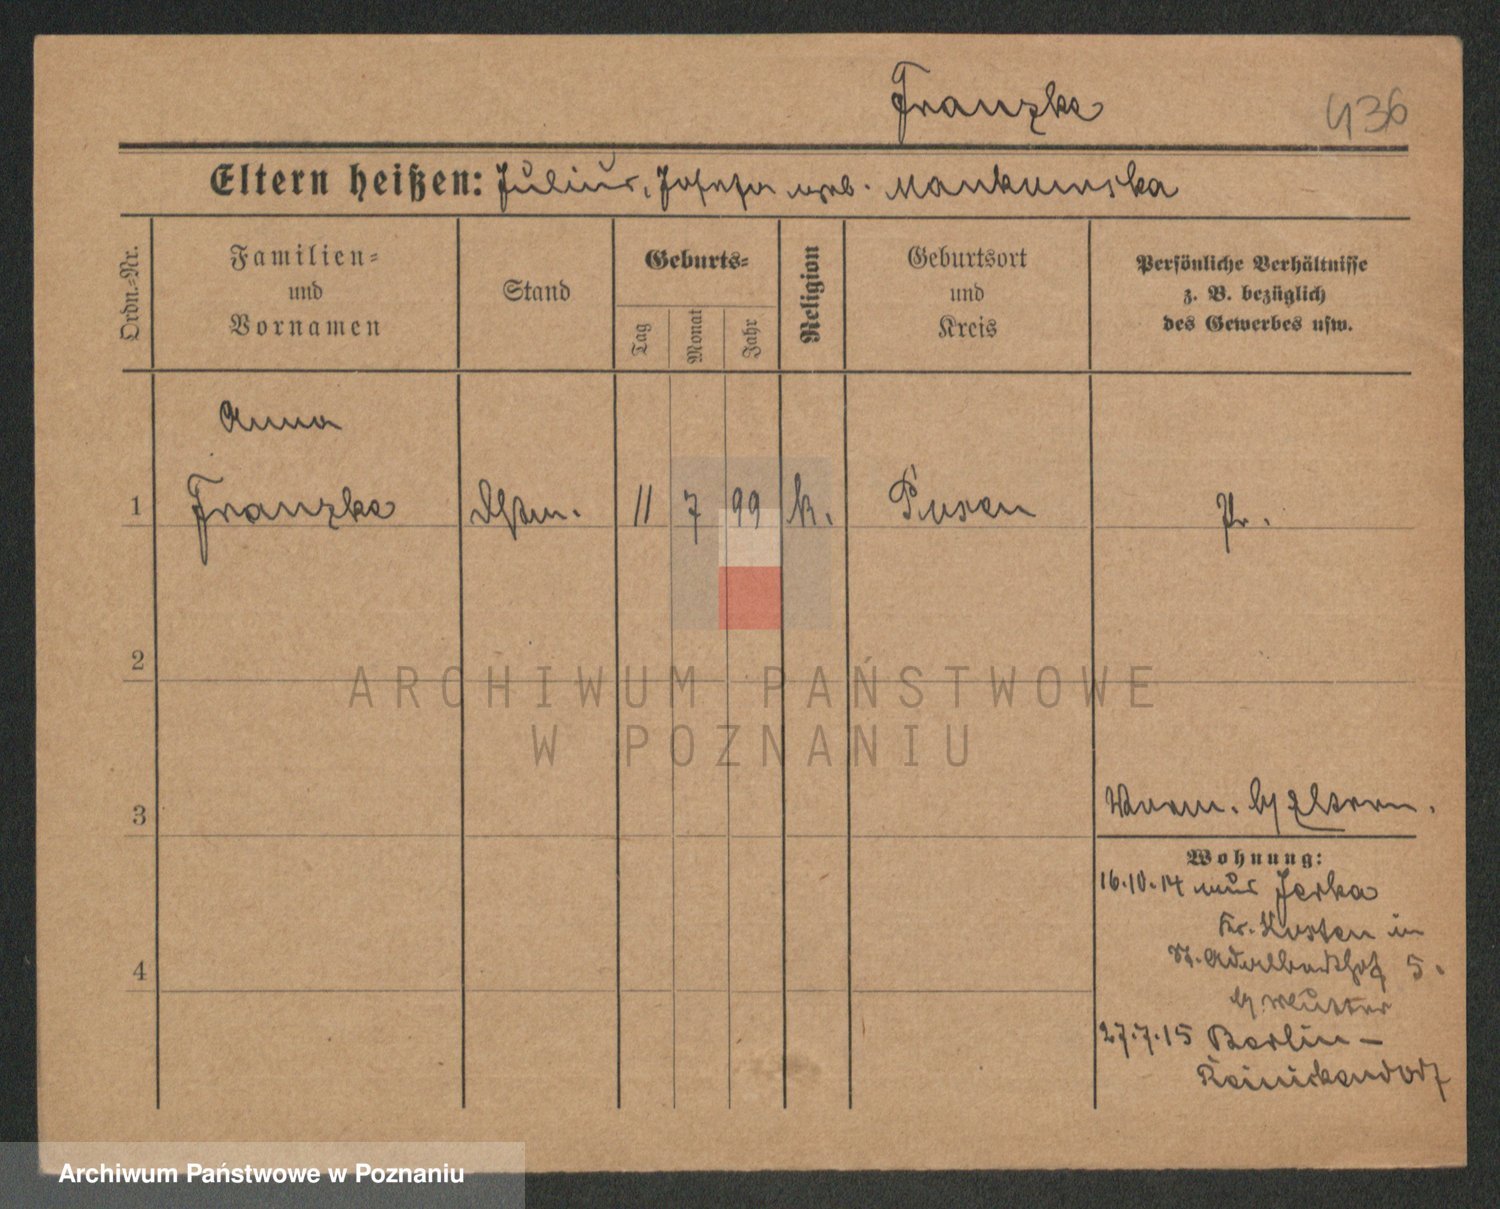 Franzke
436
Eltern heißen: Julius, Josefa geb. Mankowska
Ordn.-Nr.
Familien- und Vornamen
Stand
Geburts-
Tag
Monat
Jahr
Religion
Geburtsort und Kreis
Persönliche Verhältnisse z. B. bezüglich des Gewerbes usw.
Anna
1 Franzke 11 7 99 k. Posen Pr.
2
3
Vorm. b/ Eltern.
Wohnung:
16.10.14 aus Jerka
Kr. Kosten in
St. Adalbertstr. 5.
4
b/ Mutter
27.7.15 Berlin-
Reinickendorf
ARCHIWUM PAŃSTWOWE
W POZNANIU
Archiwum Państwowe w Poznaniu